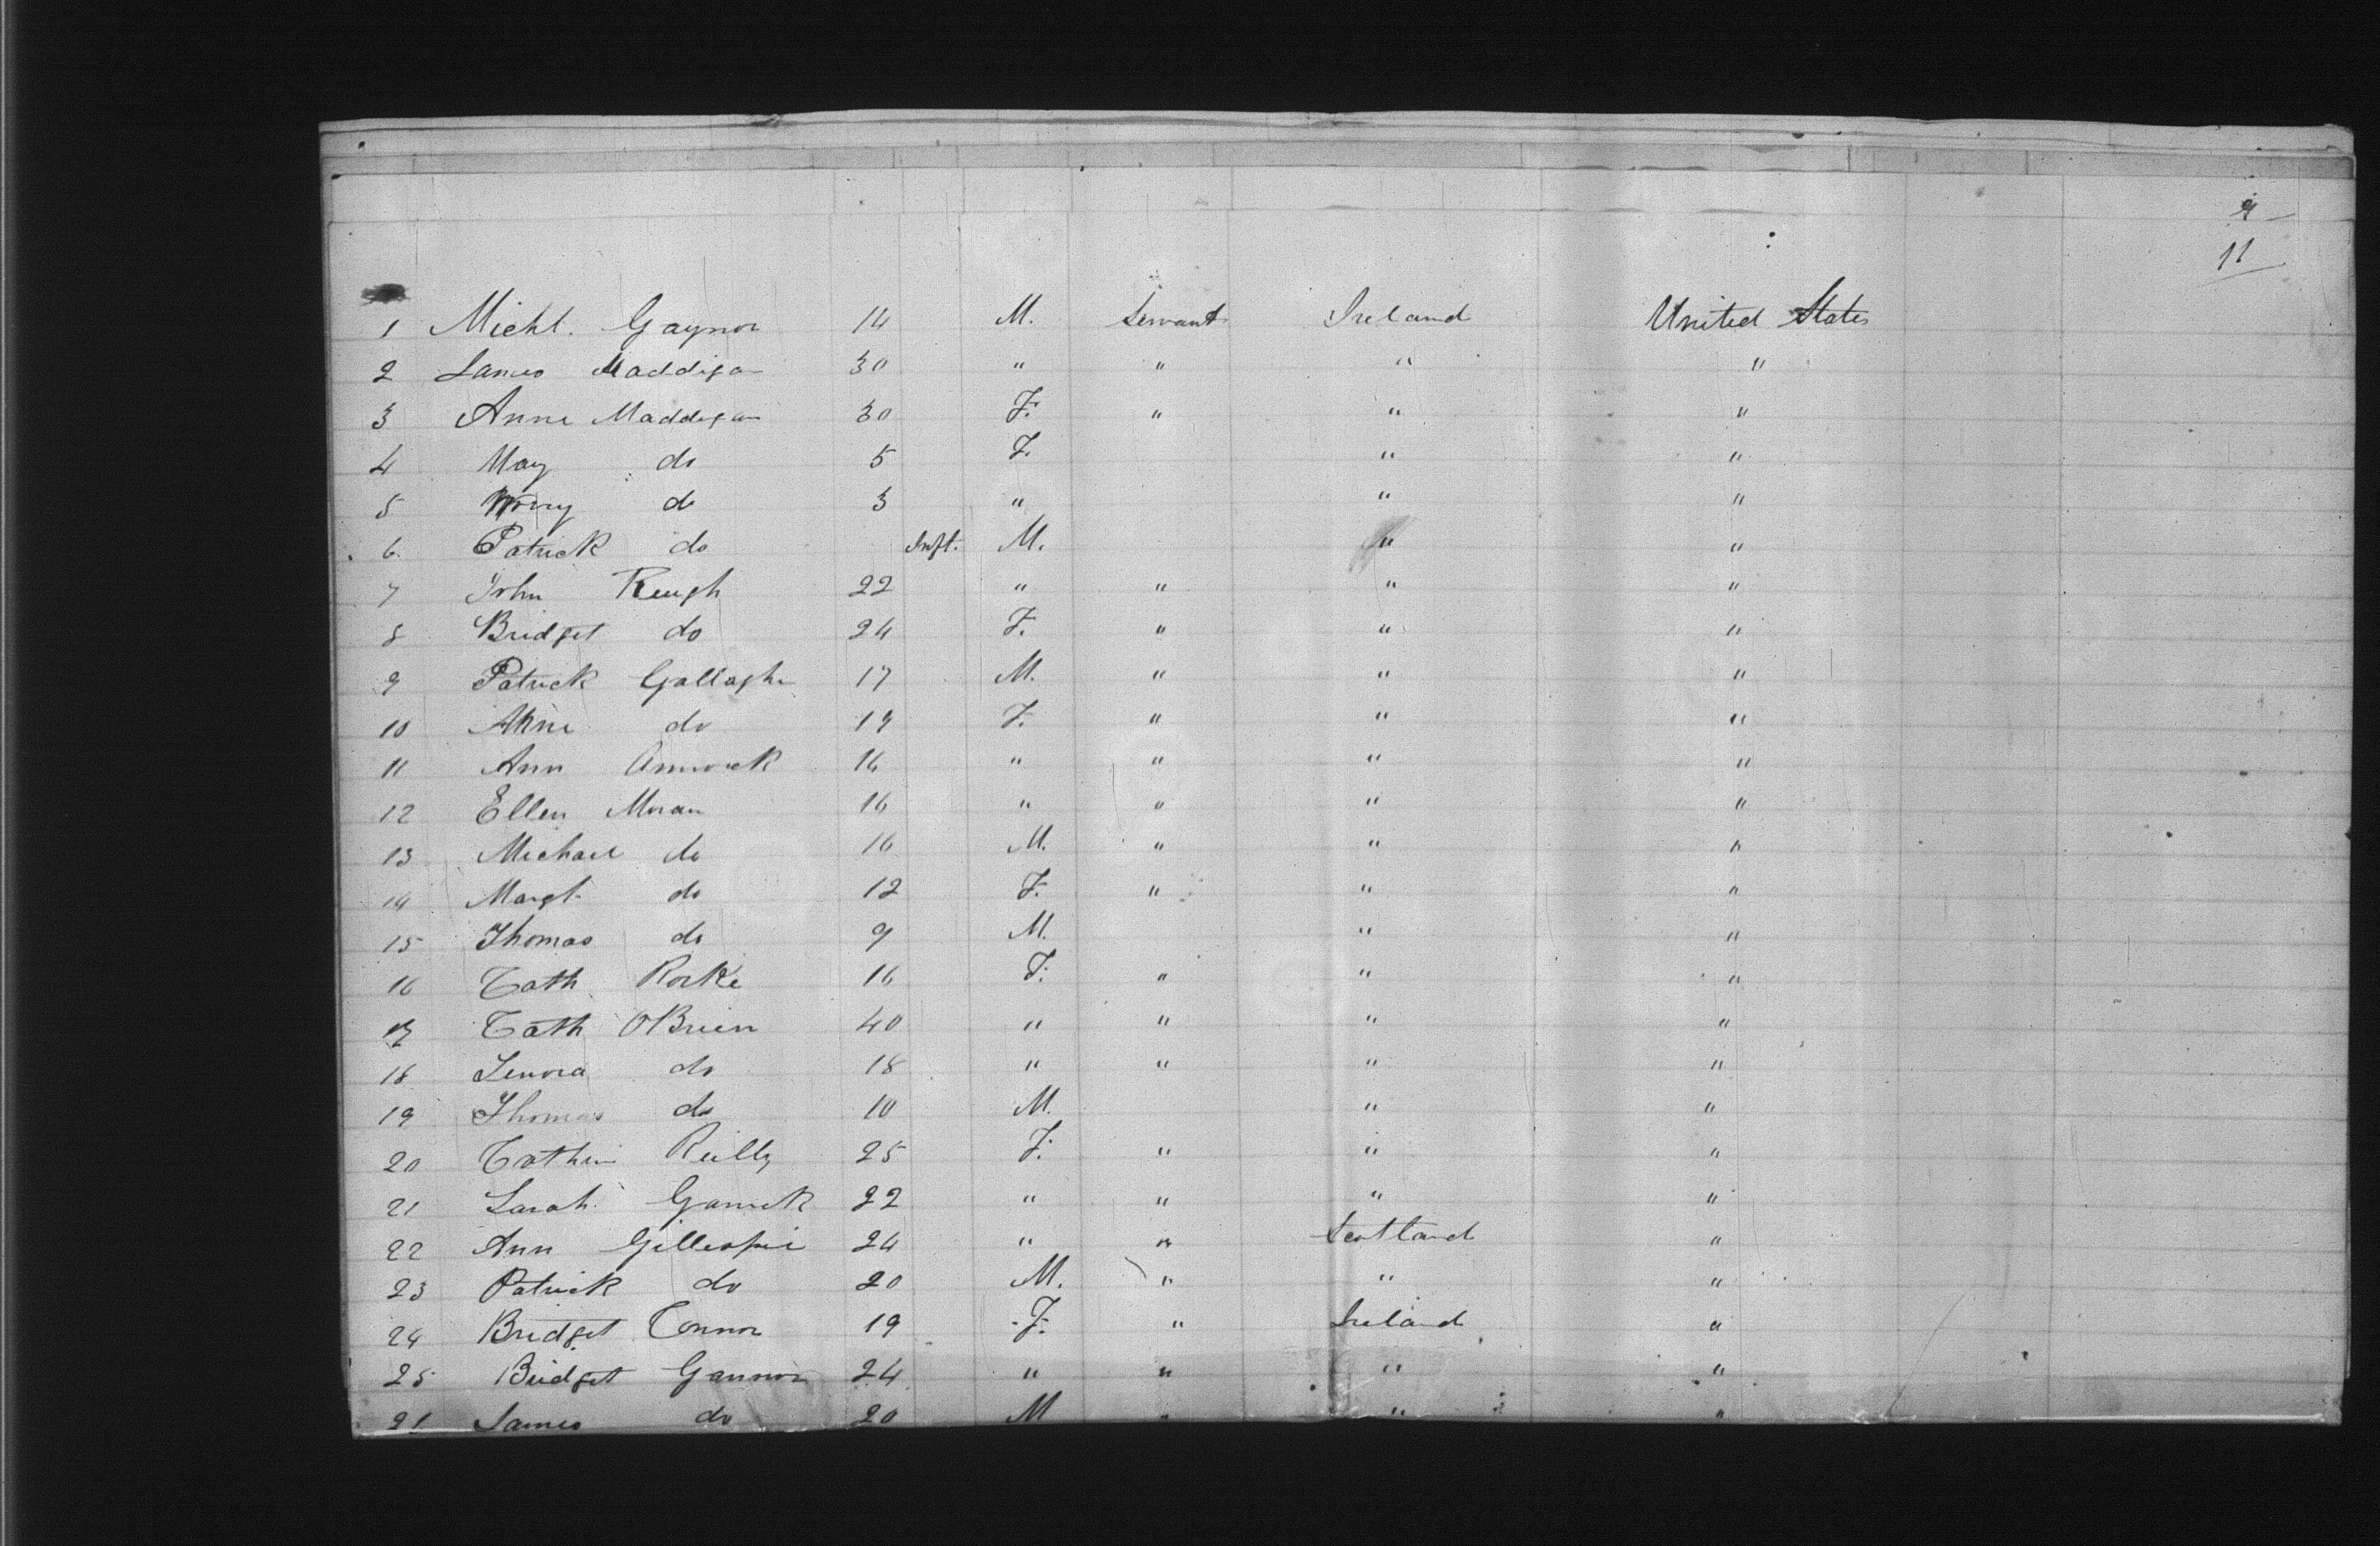 11
1 Michl. Gaynor 14 M. Servant Ireland United States
2 James Maddigan 30 " " " "
3 Anne Maddigan 30 F. " " "
4 May do 5 F. " "
5 do 3 " " "
6 Patrick do Inft. M. " "
7 John Keugh 22 " " " "
8 Bridget do 24 F. " " "
9 Patrick Gallaghe 17 M. " " "
10 Anne do 19 F. " " "
11 Ann 16 " " " "
12 Ellen Moran 16 " " " "
13 Michael do 16 M. " " "
14 Margt. do 12 F. " " "
15 Thomas do 9 M. " "
16 Cath Rorke 16 F. " " "
17 Cath OBrien 40 " " " "
18 Lenora do 18 " " " "
19 Thomas do 10 M. " "
20 Cathin Reilly 25 F. " " "
21 Sarah 22 " " " "
22 Ann Gillespie 24 " " Scotland "
23 Patrick do 20 M. " " "
24 Bridget Connor 19 F. " Ireland "
25 Bridget Gannon 24 " " " "
James do 20 M " " "